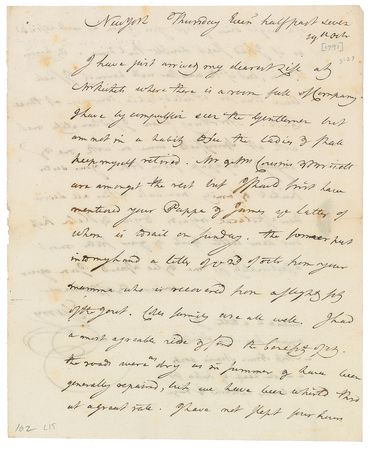 New York Thursday Even' half past seven
29th Octr
[1791]
I have just arrived my dearest Life at
where there is a room full of Company.
I have by compulsion seen the Gentlemen but
am not in a habit to see the Ladies & shall
keep myself retired. Mr & Mrs
are amongst the rest but I should first have
mentioned your Pappa & James ye latter of
whom is to sail on Sunday. the former put
into my hand a letter of ye 22d of Octr from your
mamma who is recovered from a slight fit
of the gout. family are all well. I had
a most agreeable ride of it and the benefit of
the roads were as dry as in summer & have been
generally repaired, but we have been whirled thro
at a great rate. I have not slept four hours
102 L15